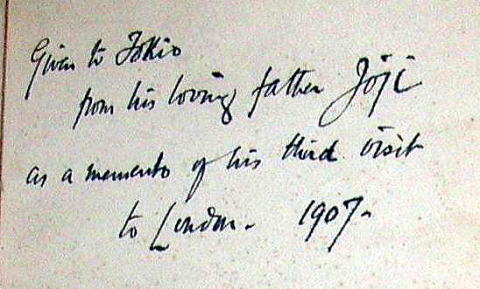 Given to Tokio
from his loving father Joji
as a memento of his third visit
to London. 1907.